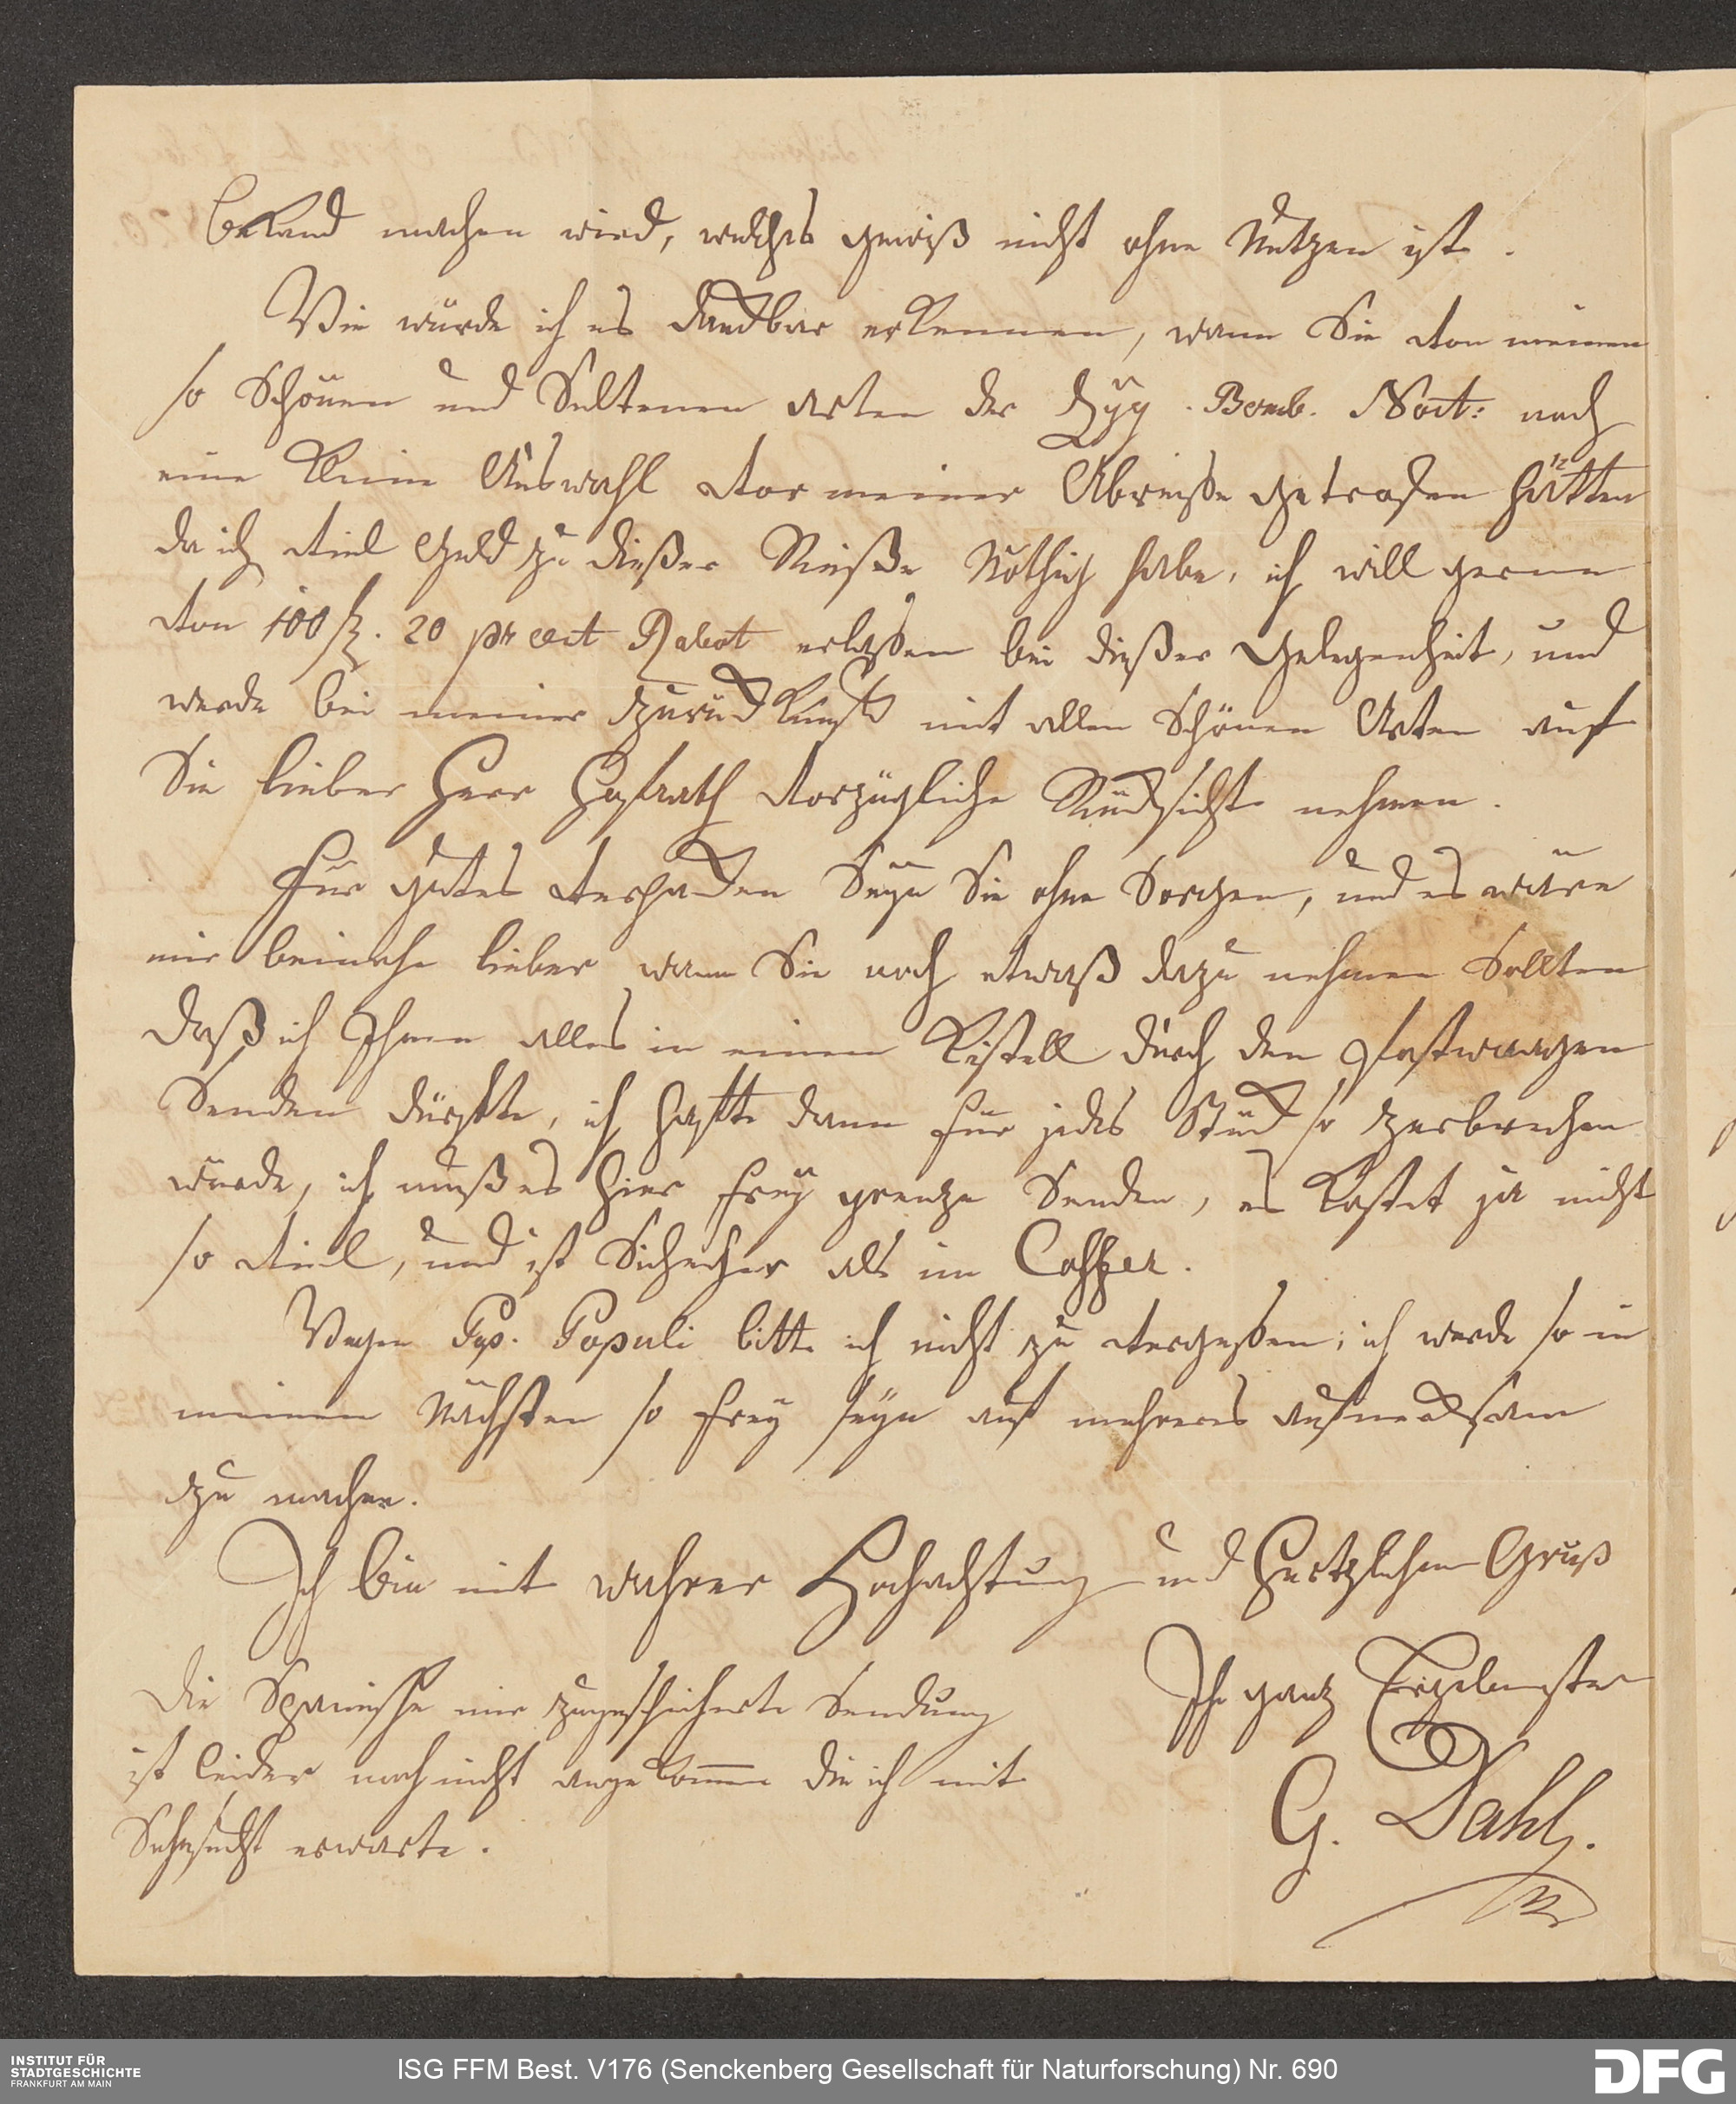 bekand machen wird, welches gewiß nicht ohne Nutzen ist.
Wie würde ich es dankbar erkennen, wann Sie von meinen
so Schönen und Seltenen arten der Zyg. Bomb. Noct: noch
eine kleine Auswahl vor meiner Abreisse getrofen hätten
da ich viel Geld zu dießer Reiße Nöthig habe, ich will gerne
von 100 f. 20 pr cct Rabat erlassen bei dießer Gelegenheit, und
werde bei meiner zurückkunft mit allen Schönen Arten auf
Sie lieber Herr Hofrath vorzügliche Rücksicht nehmen.
Für gutes verpacken Seyn Sie ohne Sorgen, und es wäre
mir beinahe lieber wann Sie noch etwaß dazu nehmen Sollten
daß ich Ihnen alles in einem Kistell durch den Postwaagen
Senden dürfte, ich hafte dann für jedes Stück so zerbrechen
würde, ich muß es hier frey grenze Senden, es kostet ja nicht
so viel, und ist Sicherher als im Coffer.
Wegen Pap. Populi bitte ich nicht zu vergessen; ich werde so in
meinem Nächsten so frey seyn auf mehreres aufmerksam
zu machen.
Ich bin mit wahrer Hochachtung und Hertzlichem Gruß
Ihr ganz Ergebenster
G. Dahl.
die Spanische mir zugesicherte Sendung
ist leider noch nicht angekommen die ich mit
Sehnsucht erwarte.
INSTITUT FÜR
STADTGESCHICHTE
FRANKFURT AM MAIN
ISG FFM Best. V176 (Senckenberg Gesellschaft für Naturforschung) Nr. 690
DFG